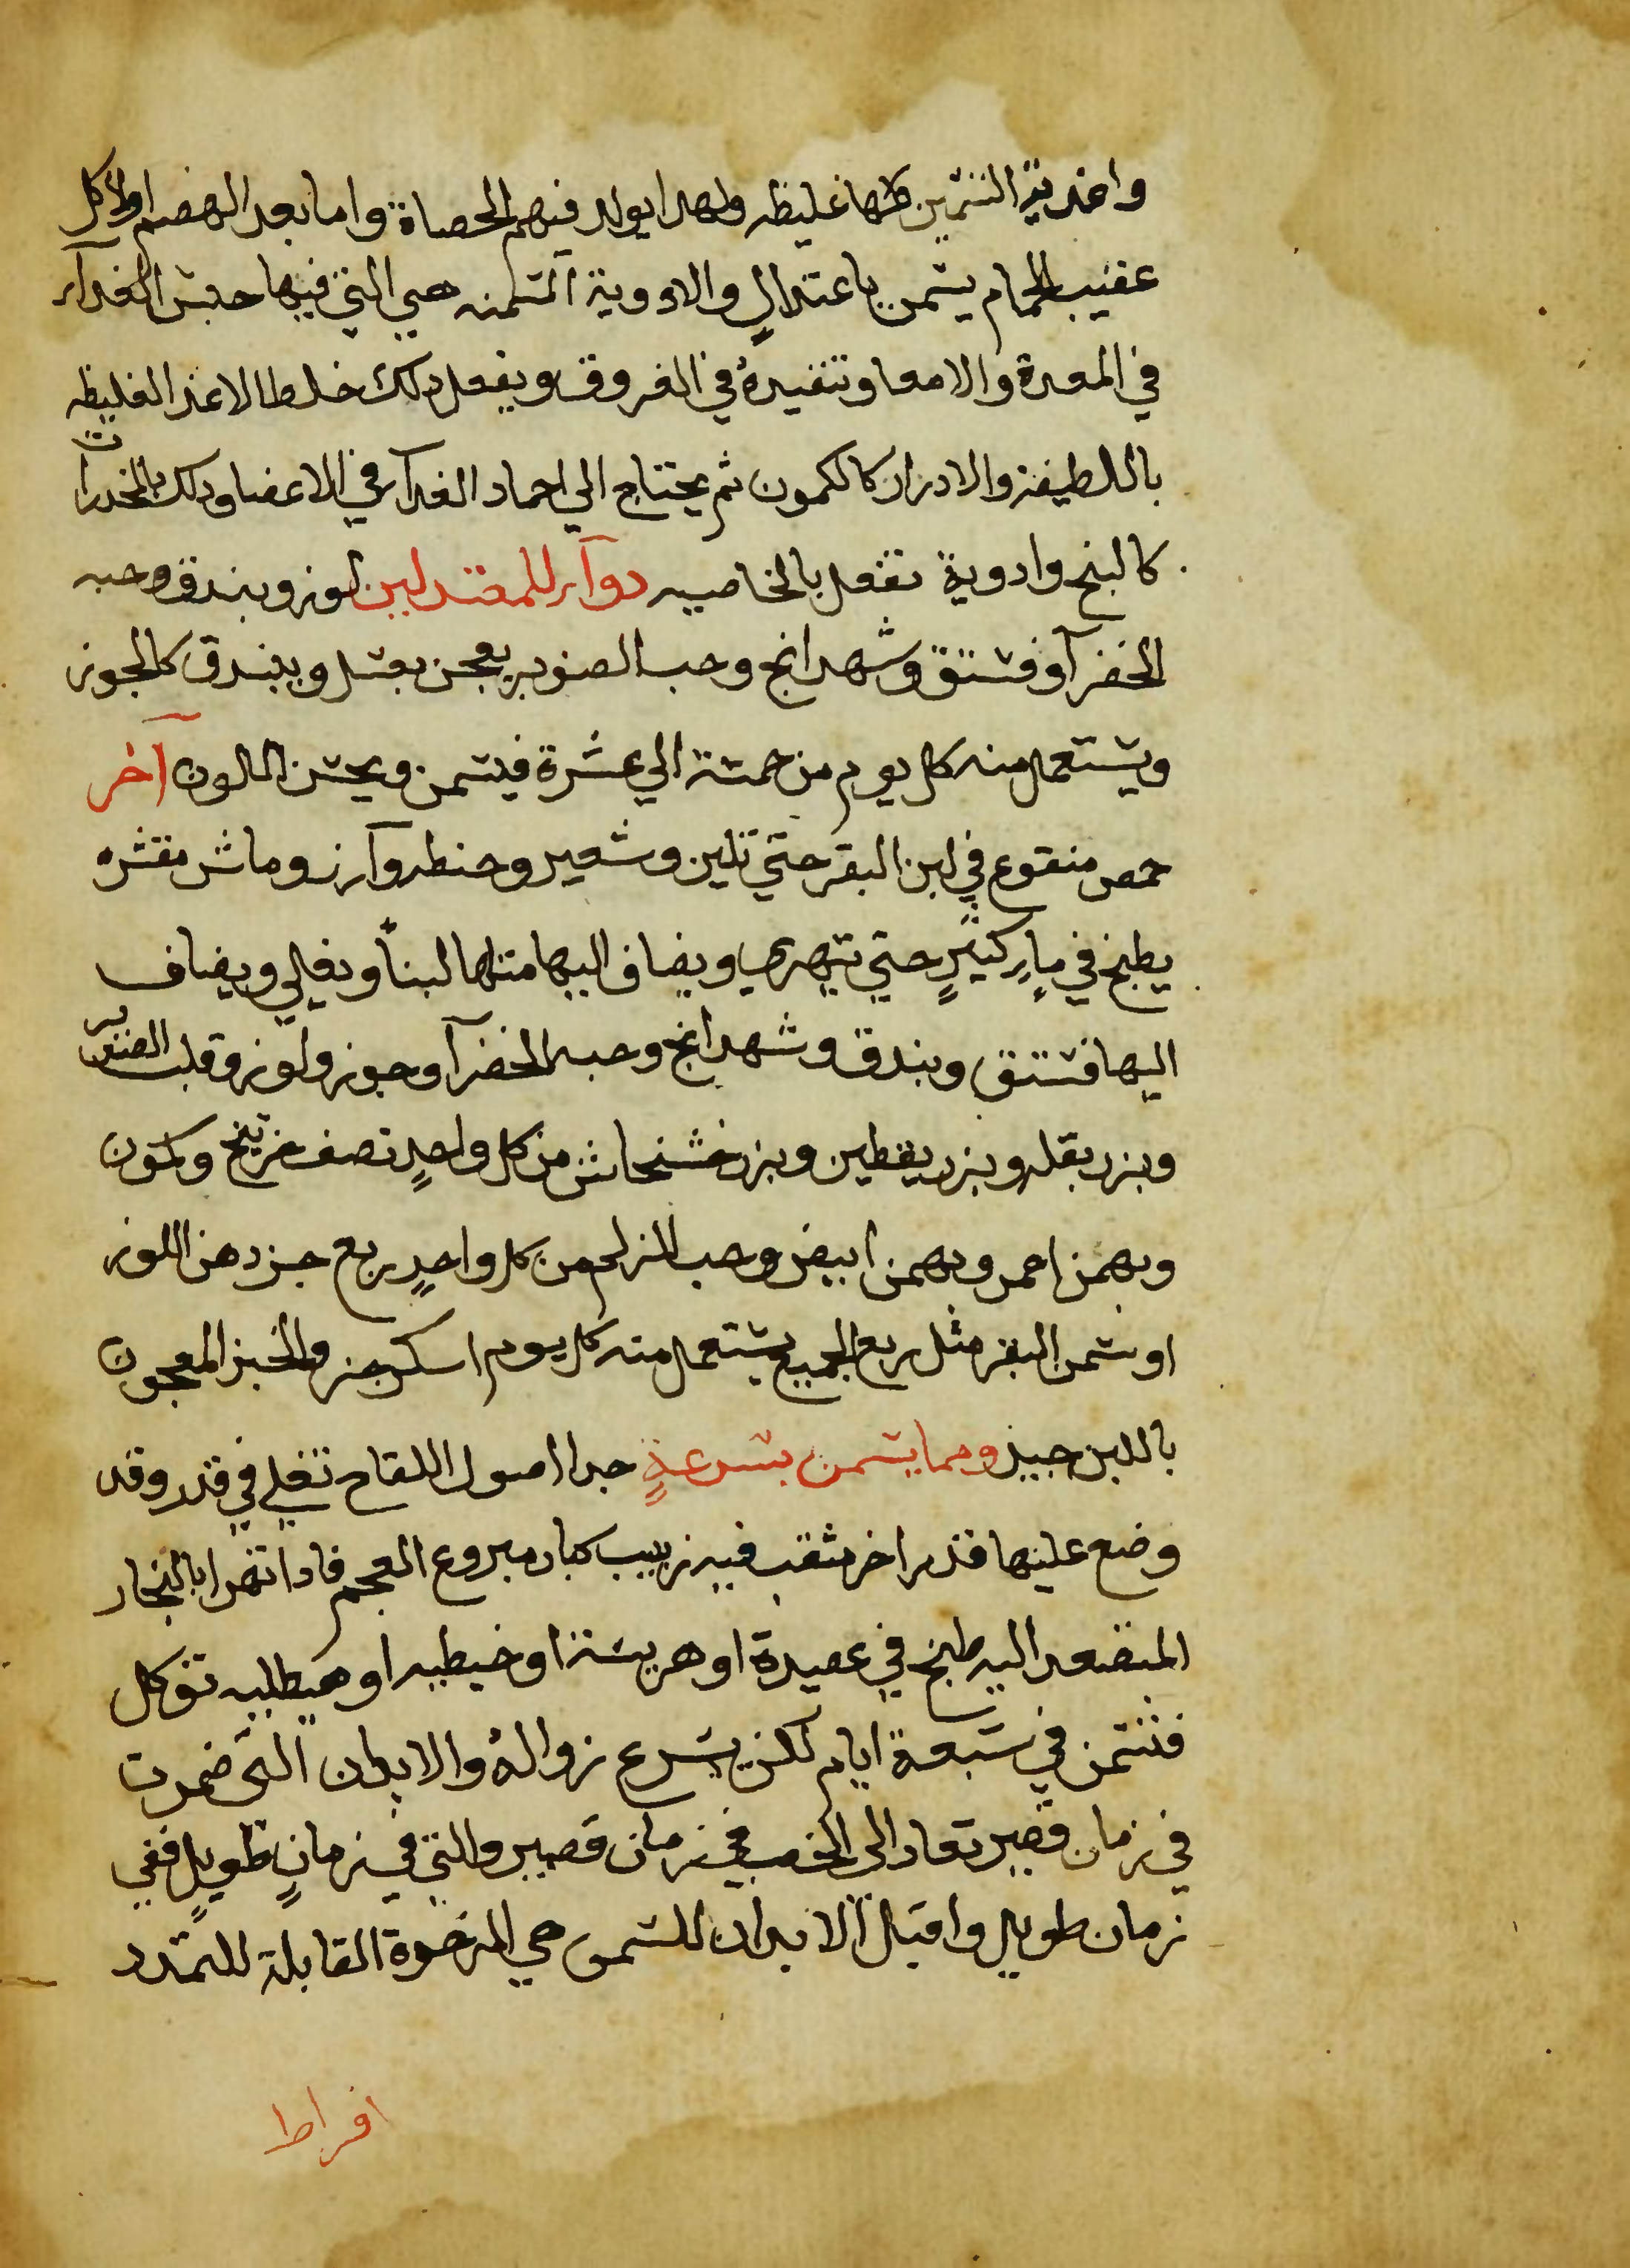 واغدية التسمين كلها غليظه ولهدا يولد فيهم الحصاة واما بعد الهضم اولاكل
عقيب الحمام يسمن باعتدالٍ والادوية المسمنه هي التي فيها حبس الغدآء
في المعدة والامعا وتنفيدهُ في العروق ويفعل دلك خلط الاغدية الغليظه
باللطيفة والادرار كالكمون ثم يحتاج الي اجماد الغدآء في الاعضا ودلك بالمخدرات
كالبنج وادوية تفعل بالخاصيه دوآء للمعتدلين لوز وبندق وحبه
الخضرآ وفستق وشهدانج وحب الصنوبر يعجن بعسل ويبندق كالجوز
ويستعمل منه كل يوم من خمسة الي عشرة فيسمن ويحسن اللون آخر
حمص منقوع في لبن البقر حتي تلين وشعير وحنطه وآرز وماش مقشره
يطبخ في مآءٍ كثيرٍ حتي يتهري ويضاف اليها مثلها لبناً ويغلي ويضاف
اليها فستق وبندق وشهدانج وحبه الخضرآ وجوز ولوز وقلب الصنوبر
وبزر بقله وبزر يقطين وبزر خشخاش من كل واحدٍ نصف مزيخ وكمون
وبهمن احمر وبهمن ابيض وحب الزلم من كل واحدٍ ربع جزء دهن اللوز
او سمن البقر مثل ربع الجميع يستعمل منه كل يوم اسكرجة والخبز المعجون
باللبن جيد ومما يسمن بسرعةٍ جدا اصول اللفاح تغلي في قدر وقد
وضع عليها قدر اخر مثقب فيه زبيب كبار منزوع العجم فادا تهرا بالبخار
المتصعد اليه طبخ في عصيدة او هريسة او خيطيه او هيطليه تؤكل
فتسمن في سبعة ايام لكن يسرع زوالهُ والابدان التي ضمرت
في زمان قصير تعاد الى الخصب في زمان قصير والتي في زمانٍ طويلٍ ففي
زمان طويل واقبل الابدان للسمن هي الرخوة القابلة للتمدد
افراط